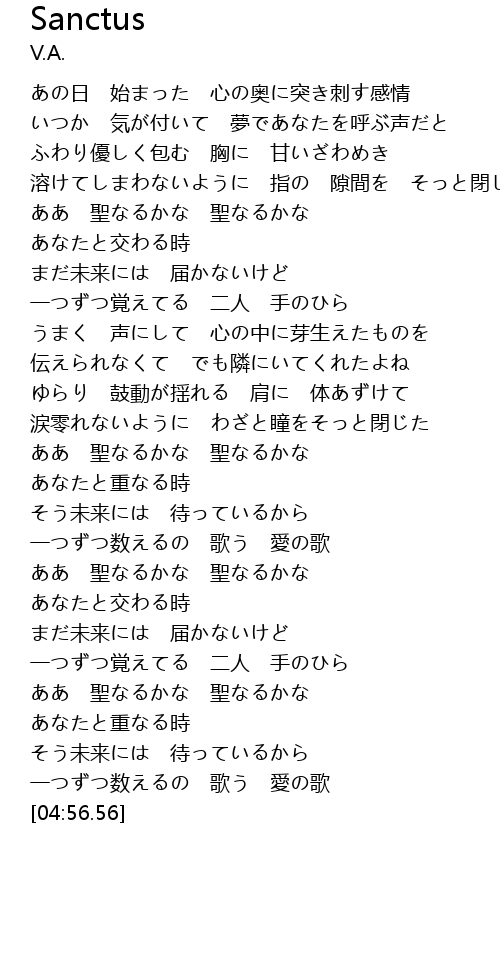 Sanctus
V.A.
あの日　始まった　心の奥に突き刺す感情
いつか　気が付いて　夢であなたを呼ぶ声だと
ふわり優しく包む　胸に　甘いざわめき
溶けてしまわないように　指の　隙間を　そっと閉じ
ああ　聖なるかな　聖なるかな
あなたと交わる時
まだ未来には　届かないけど
一つずつ覚えてる　二人　手のひら
うまく　声にして　心の中に芽生えたものを
伝えられなくて　でも隣にいてくれたよね
ゆらり　鼓動が揺れる　肩に　体あずけて
涙零れないように　わざと瞳をそっと閉じた
ああ　聖なるかな　聖なるかな
あなたと重なる時
そう未来には　待っているから
一つずつ数えるの　歌う　愛の歌
ああ　聖なるかな　聖なるかな
あなたと交わる時
まだ未来には　届かないけど
一つずつ覚えてる　二人　手のひら
ああ　聖なるかな　聖なるかな
あなたと重なる時
そう未来には　待っているから
一つずつ数えるの　歌う　愛の歌
[04:56.56]